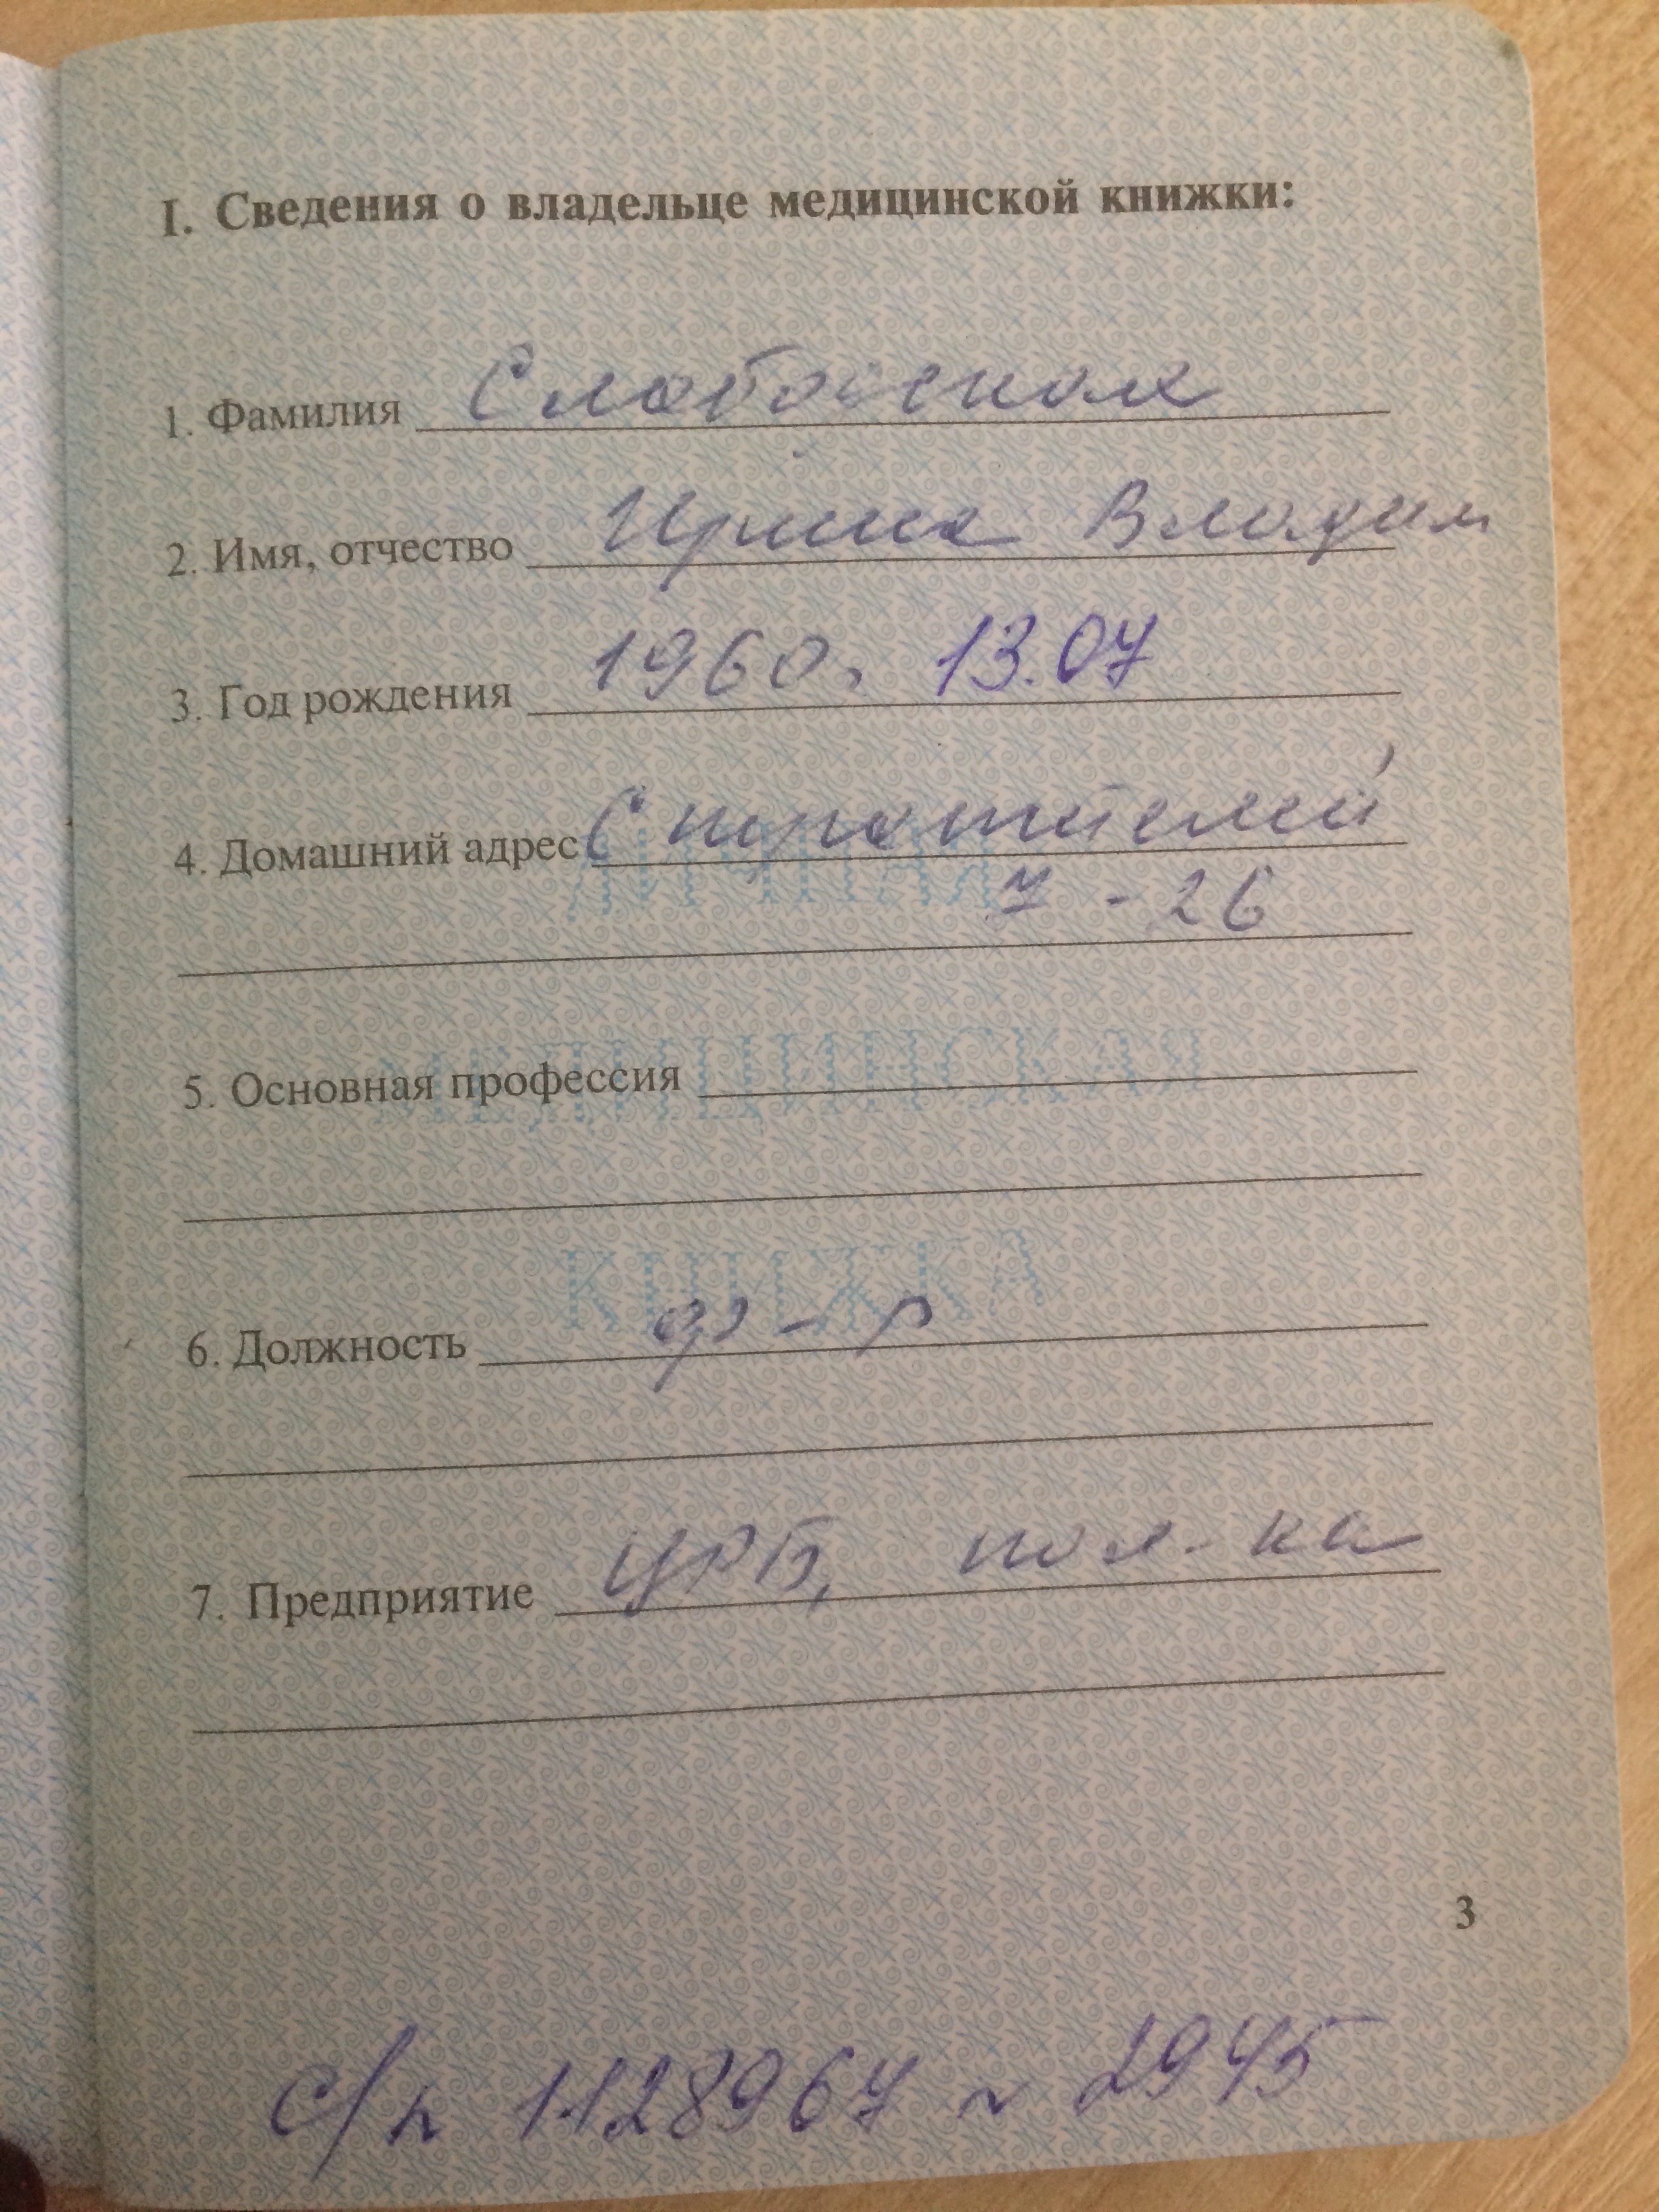 I. Сведения о владельце медицинской книжки:
1. Фамилия Слободская
2. Имя, отчество Ирина Владим
3. Год рождения 1960. 13.07
4. Домашний адрес Строителей
7 - 26
ЛИЧНАЯ
5. Основная профессия
МЕДИЦИНСКАЯ
КНИЖКА
6. Должность ф-р
7. Предприятие ЦРБ, пол-ка
3
с/н 1128967 ~ 2945